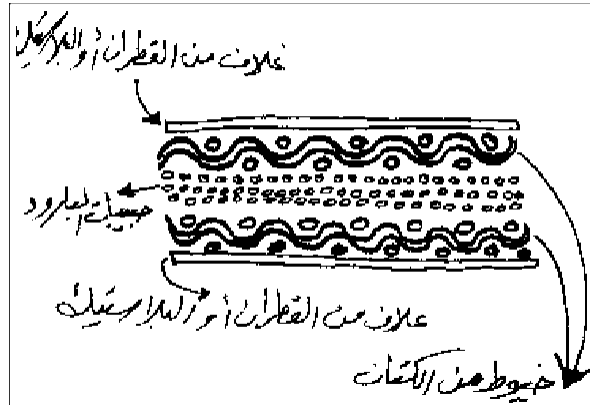 غلاف من القطران أو البلاستيك
حبيبات البارود
غلاف من القطران أو البلاستيك
خيوط من الكتان